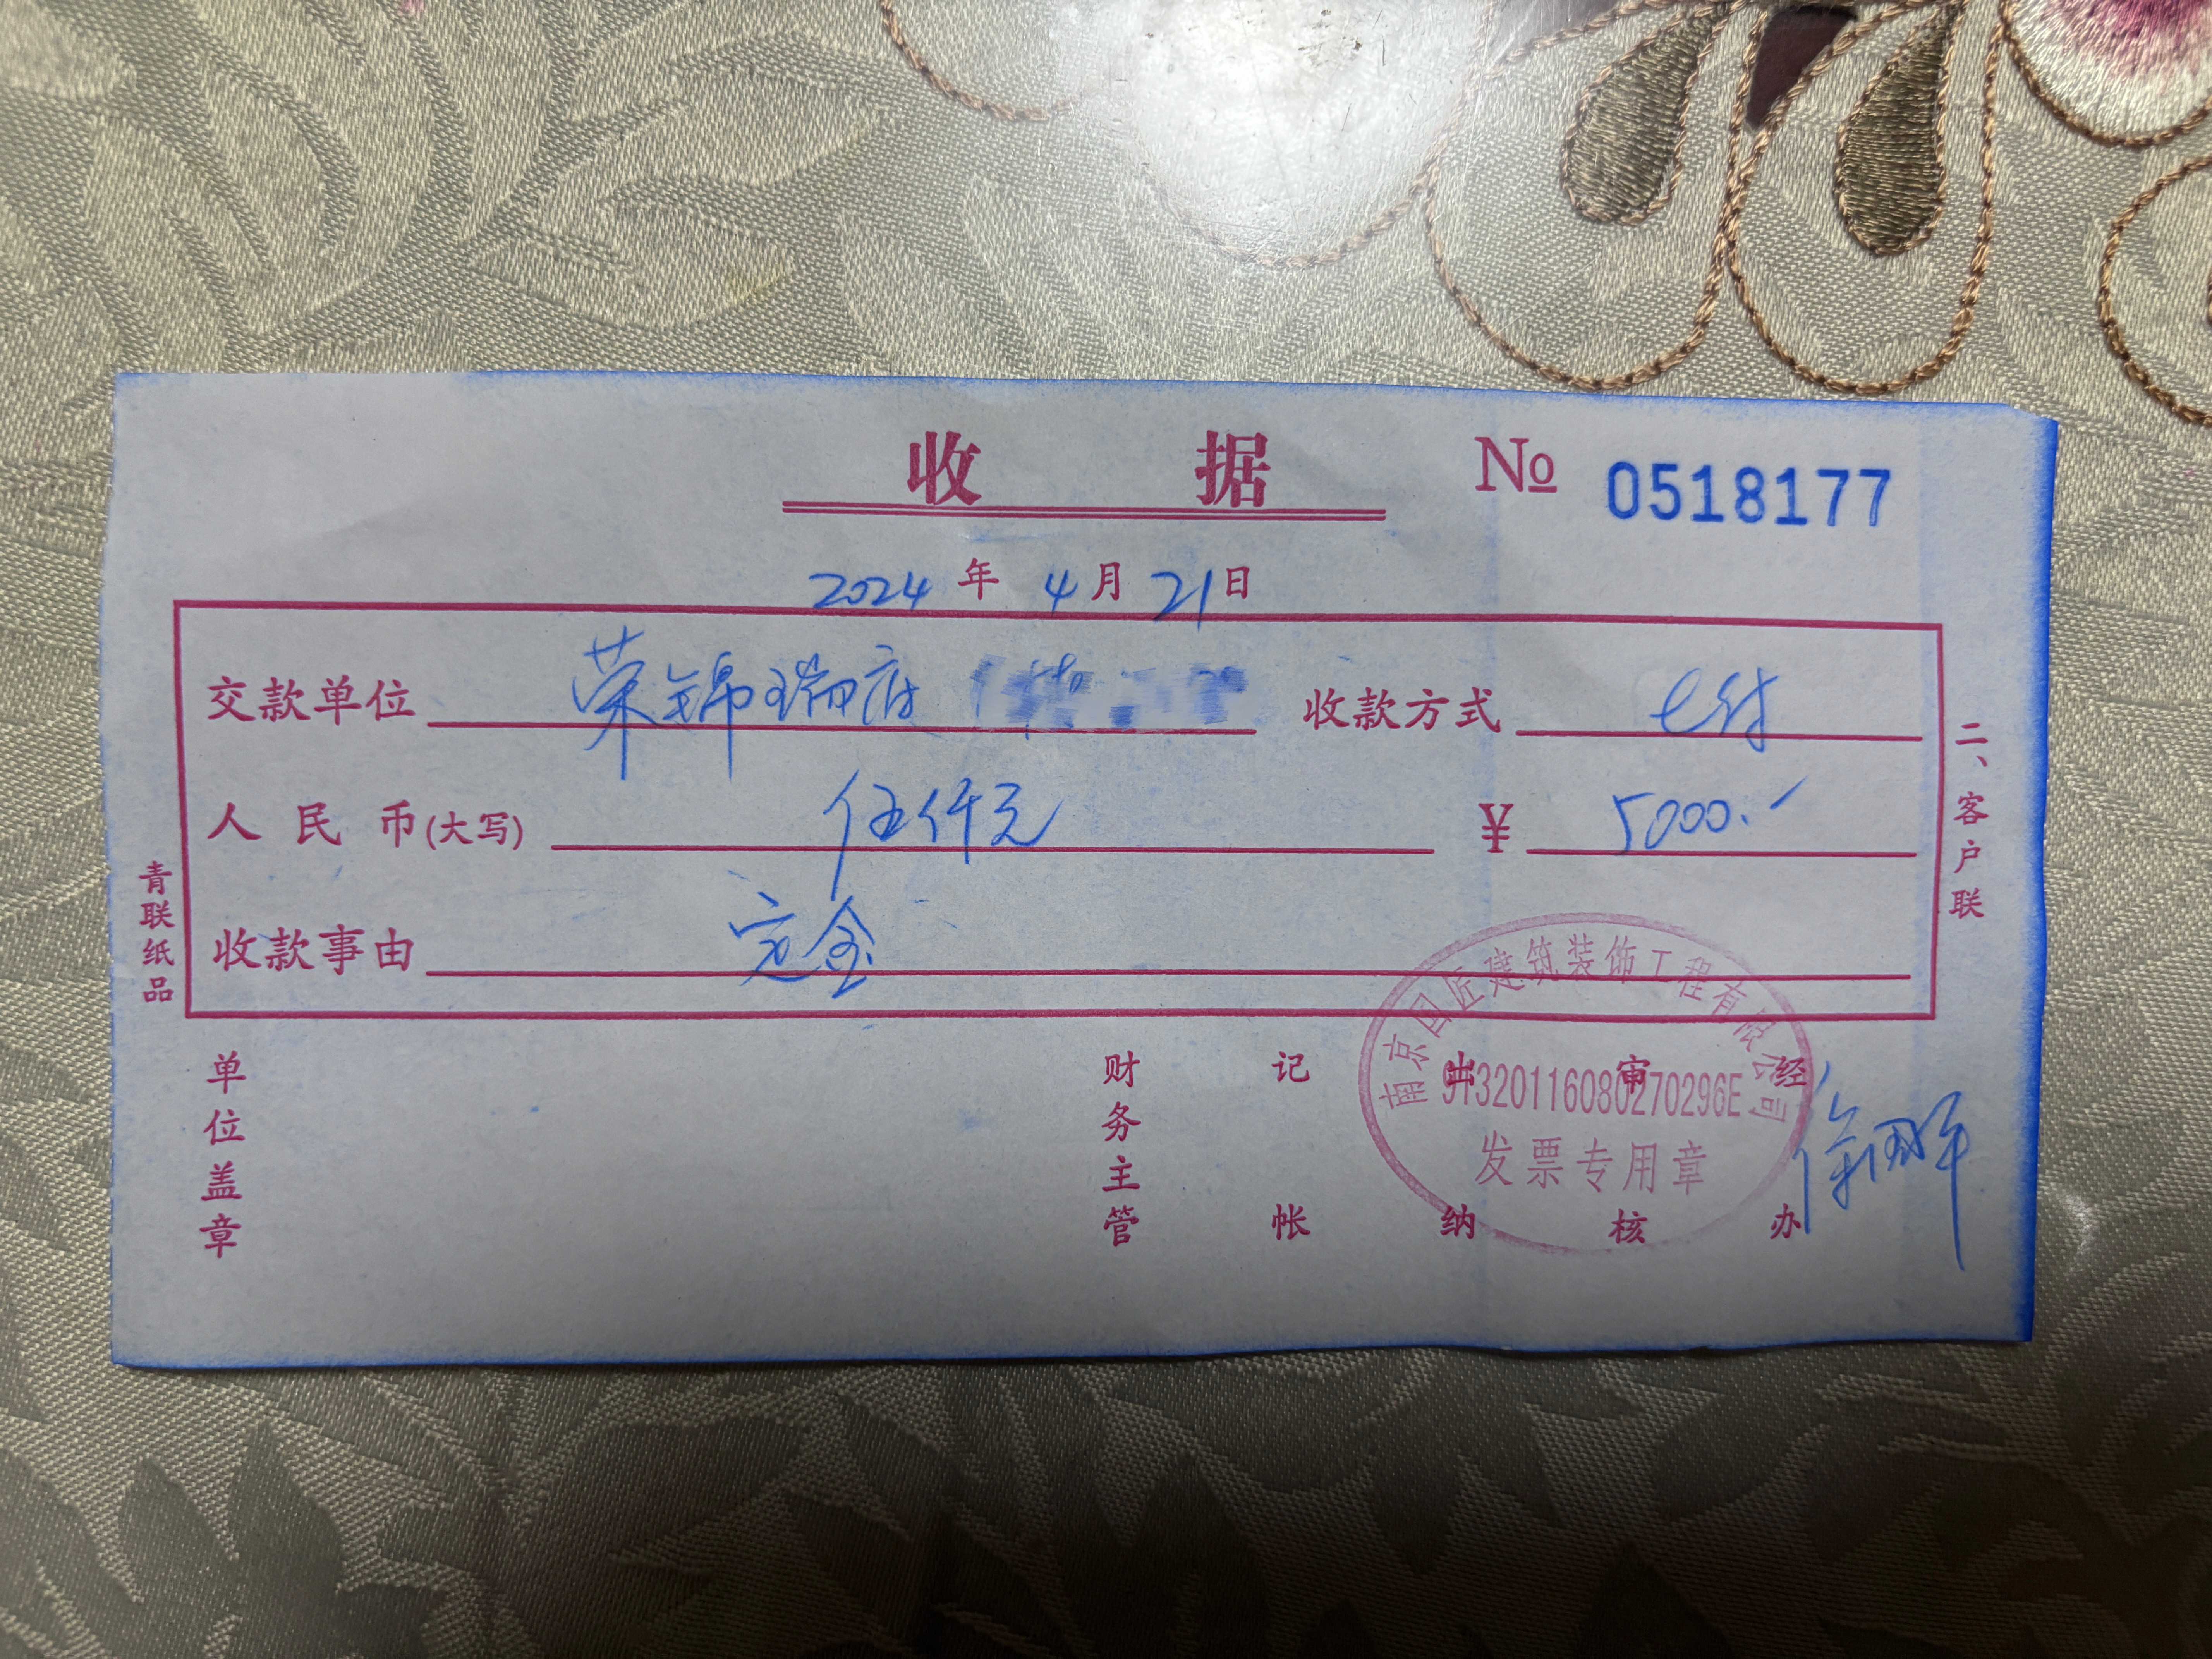 收据 № 0518177
2024年4月21日
交款单位 荣锦瑞府 收款方式
人民币(大写) 伍仟元 ¥ 5000.-
收款事由 定金
南京匠建筑装饰工程有限公司
发票专用章
单位盖章 财务主管 记帐 出纳 审核 经办
青联纸品
二、客户联